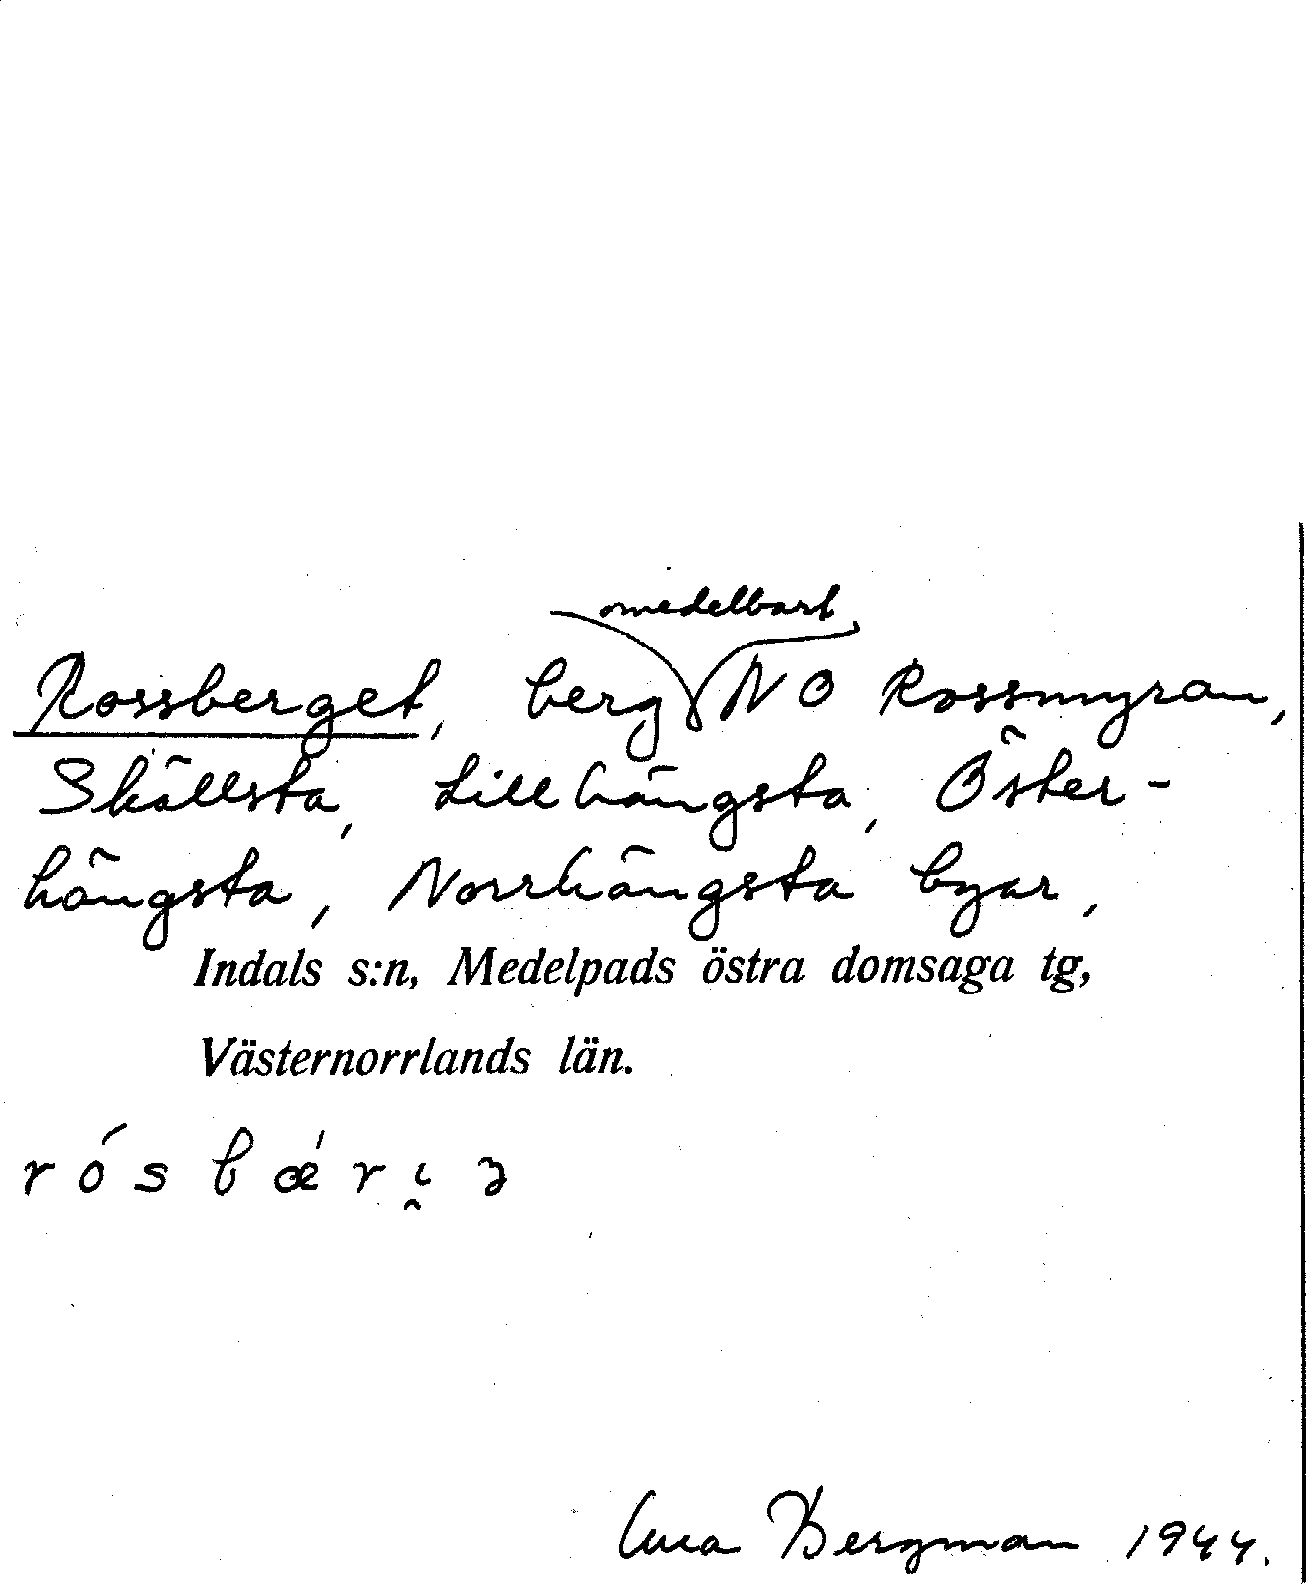 omedelbart
Rossberget, berg NO Rossmyran,
Skällsta, Lillhängsta, Öster-
hängsta, Norrhängsta byar,
Indals s:n, Medelpads östra domsaga tg,
Västernorrlands län.
rósbǽr
Bergman 1944.